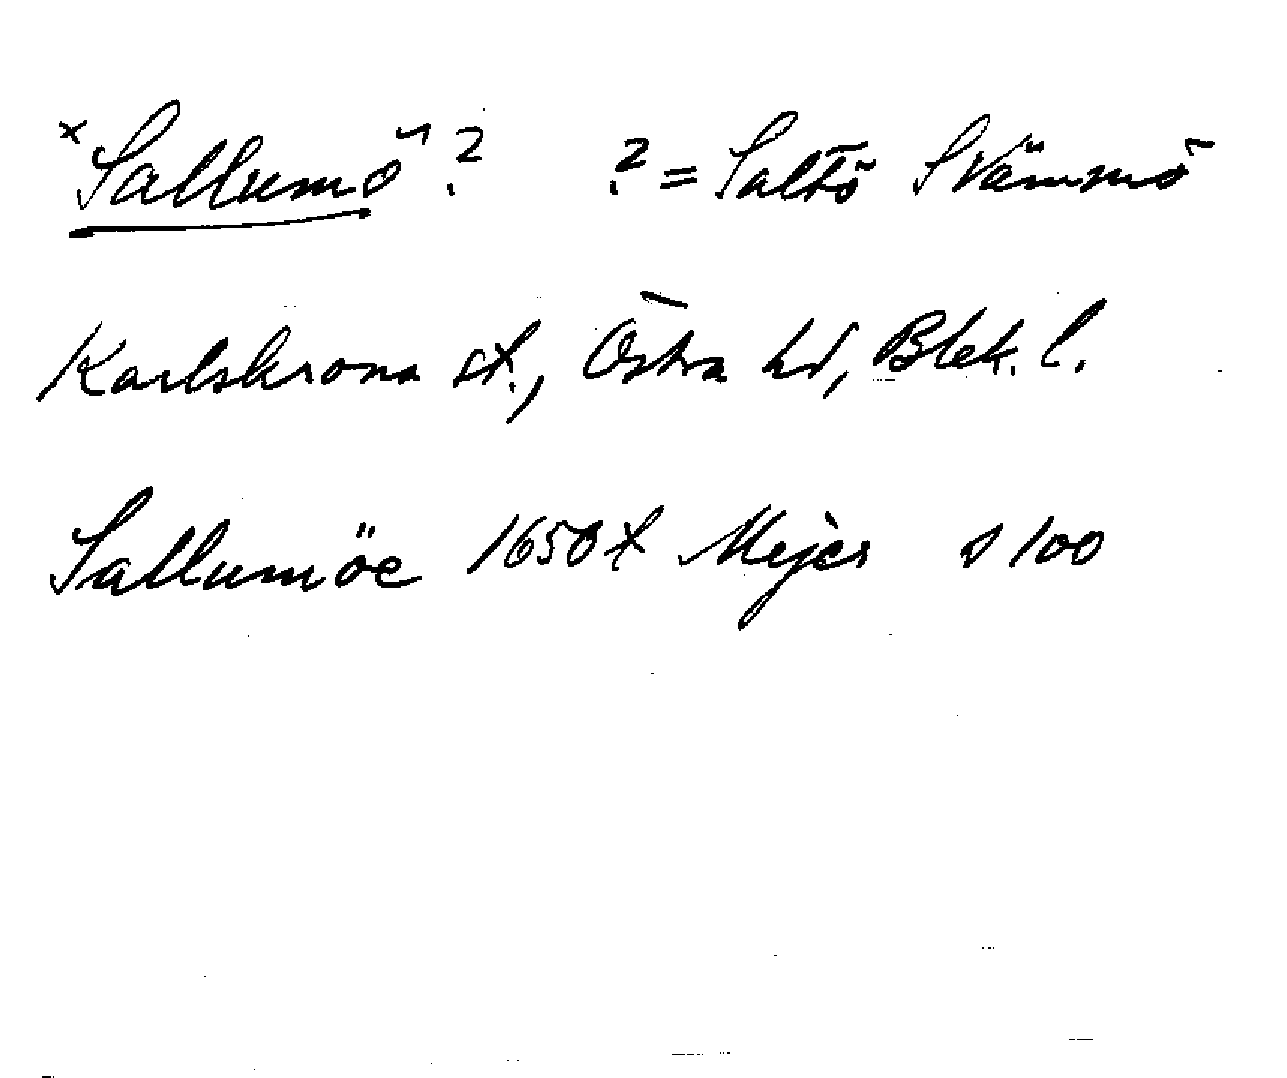 x Sallumö? ? = Saltö Svämmö
Karlskrona st., Östra hd, Blek. l.
Sallumöe 1650t Mejer s 100